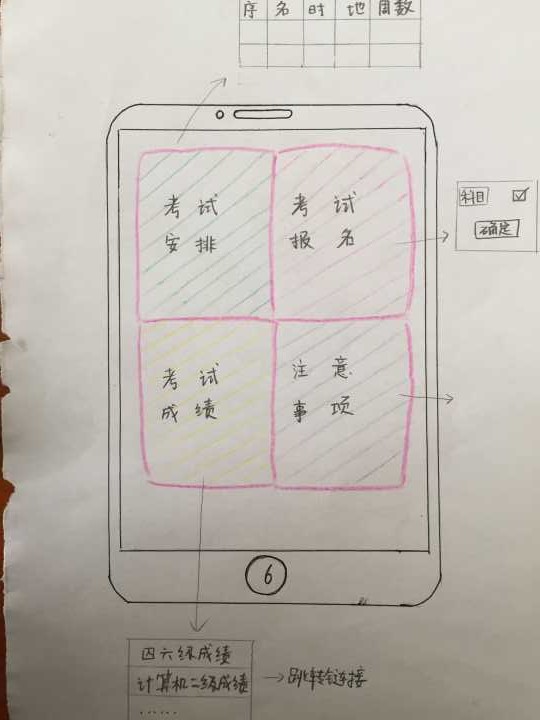 序 名 时 地 周数
考试
安排
考试
报名
科目 ☑
确定
考试
成绩
注意
事项
6
四六级成绩
计算机二级成绩 → 跳转链接
......